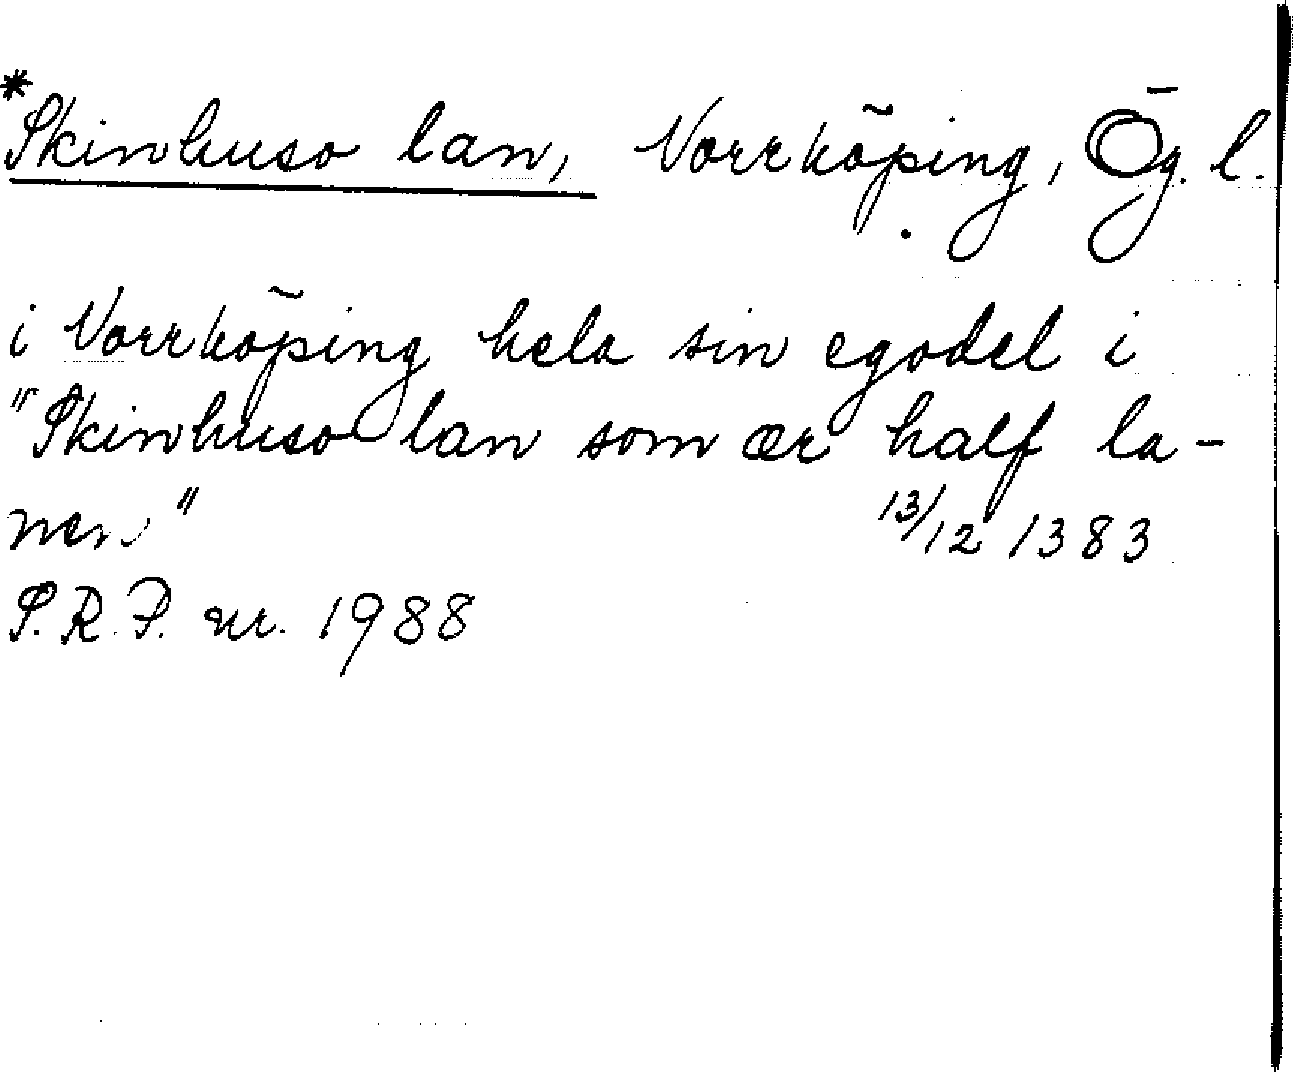 *Skinhuso lan, Norrköping, Ög. l.
i Norrköping hela sin egodel i
"Skinhuso lan som ær half la-
nen" 13/12 1383
S.R.P. nr. 1988